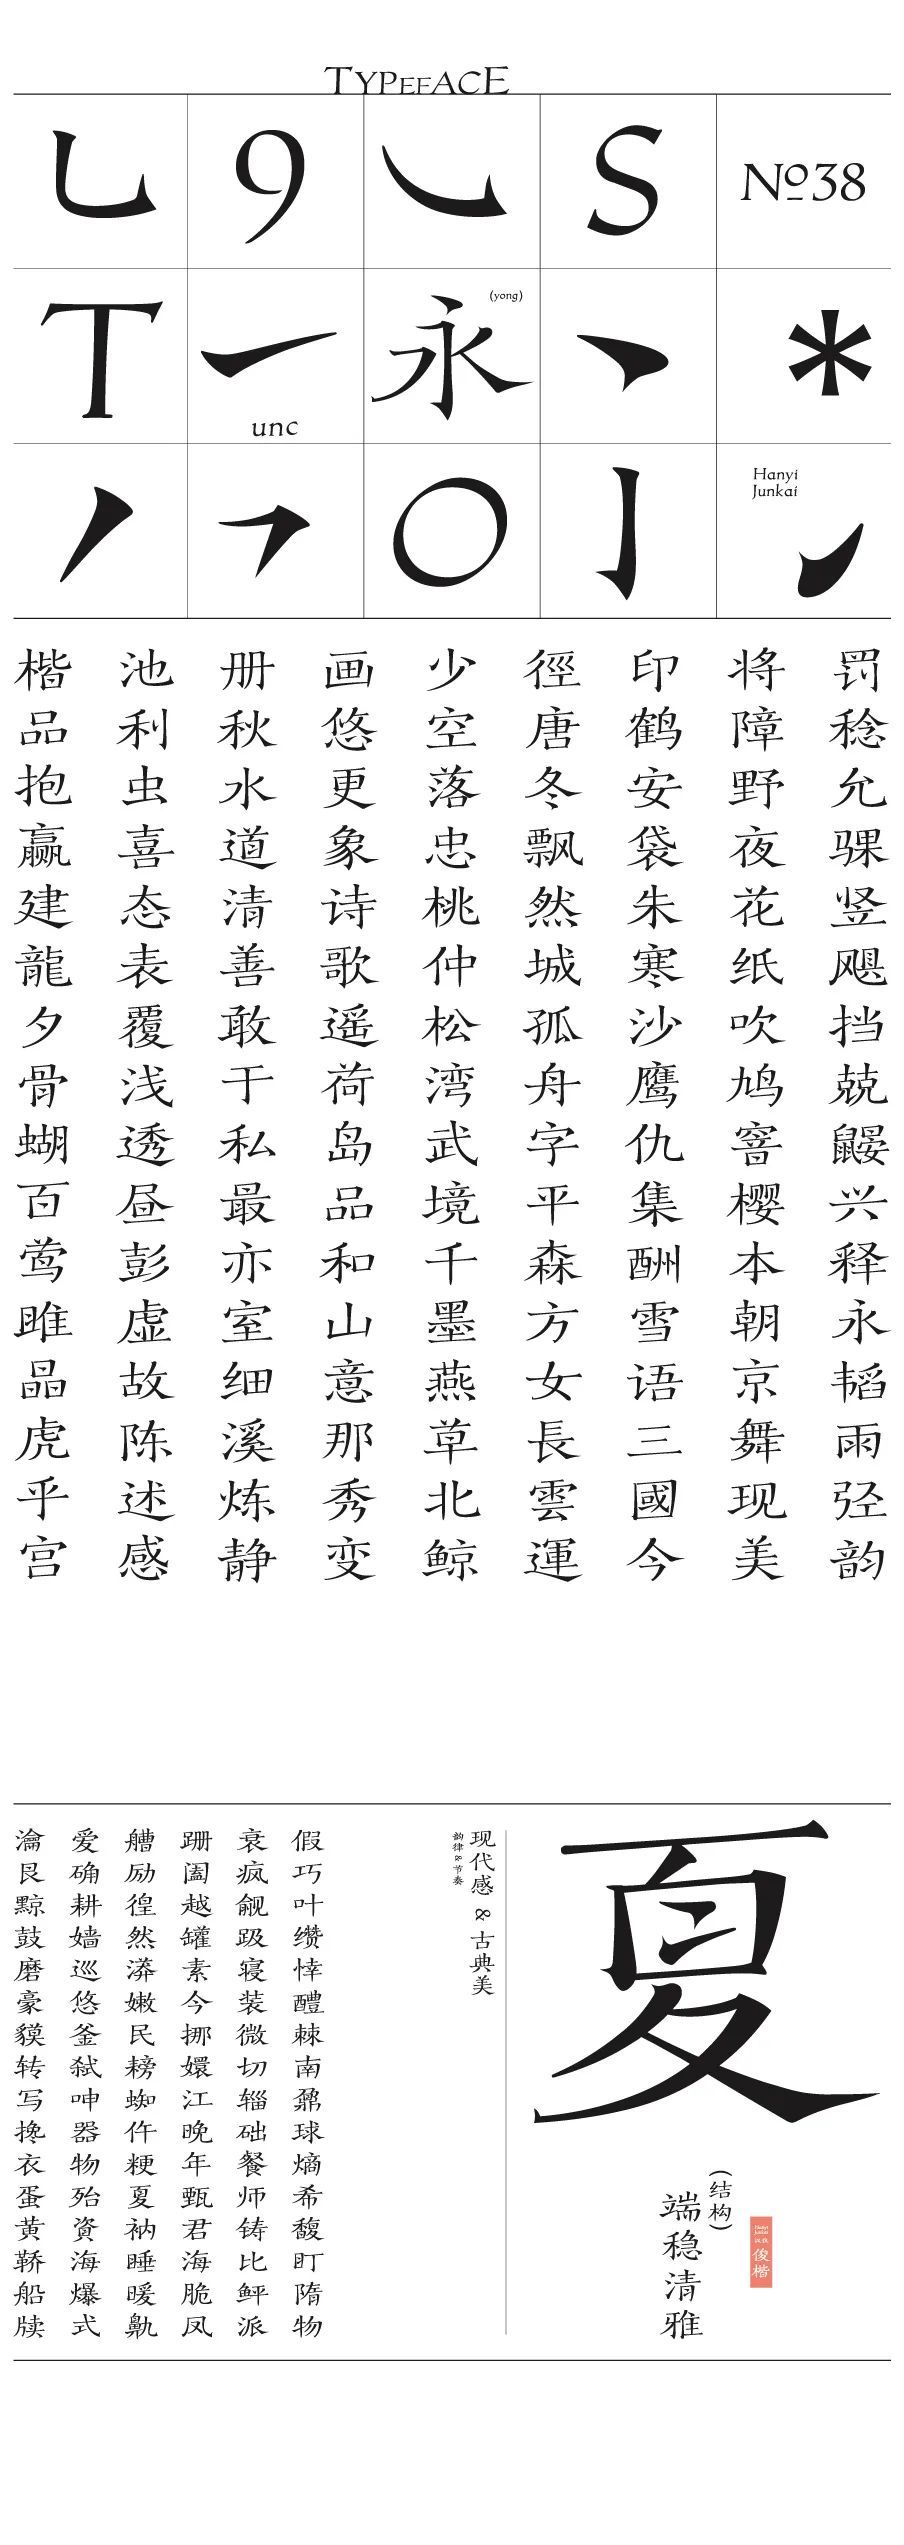 TYPEFACE
9
S
Nº38
T
unc
永
(yong)
*
O
Hanyi
Junkai
楷 池 册 画 少 徑 印 将 罚
品 利 秋 悠 空 唐 鹤 障 稔
抱 虫 水 更 落 冬 安 野 允
赢 喜 道 象 忠 飘 袋 夜 骒
建 态 清 诗 桃 然 朱 花 竖
龍 表 善 歌 仲 城 寒 纸 飓
夕 覆 敢 遥 松 孤 沙 吹 挡
骨 浅 于 荷 湾 舟 鹰 鸠 兢
蝴 透 私 岛 武 字 仇 窨 鼹
百 昼 最 品 境 平 集 樱 兴
莺 彭 亦 和 千 森 酬 本 释
雎 虚 室 山 墨 方 雪 朝 永
晶 故 细 意 燕 女 语 京 韬
虎 陈 溪 那 草 長 三 舞 雨
乎 述 炼 秀 北 雲 國 现 弪
宫 感 静 变 鲸 運 今 美 韵
瀹 爱 艚 跚 衰 假
艮 确 励 阖 疯 巧
黥 耕 徨 越 觎 叶
鼓 嫱 然 罐 趿 缵
磨 巡 漭 素 寝 悻
豪 悠 嫩 今 装 醴
貘 釜 民 挪 微 棘
转 弑 耪 嬛 切 南
写 呻 蜘 江 辎 鼐
搀 器 仵 晚 础 球
衣 物 粳 年 餐 熵
蛋 殆 夏 甄 师 希
黄 資 衲 君 铸 馥
轿 海 睡 海 比 盯
船 爆 暖 脆 鲆 隋
牍 式 鼽 凤 派 物
现代感 & 古典美
韵律 & 节奏
夏
(结构)
端稳清雅
Hanyi
Junkai
汉仪
俊楷